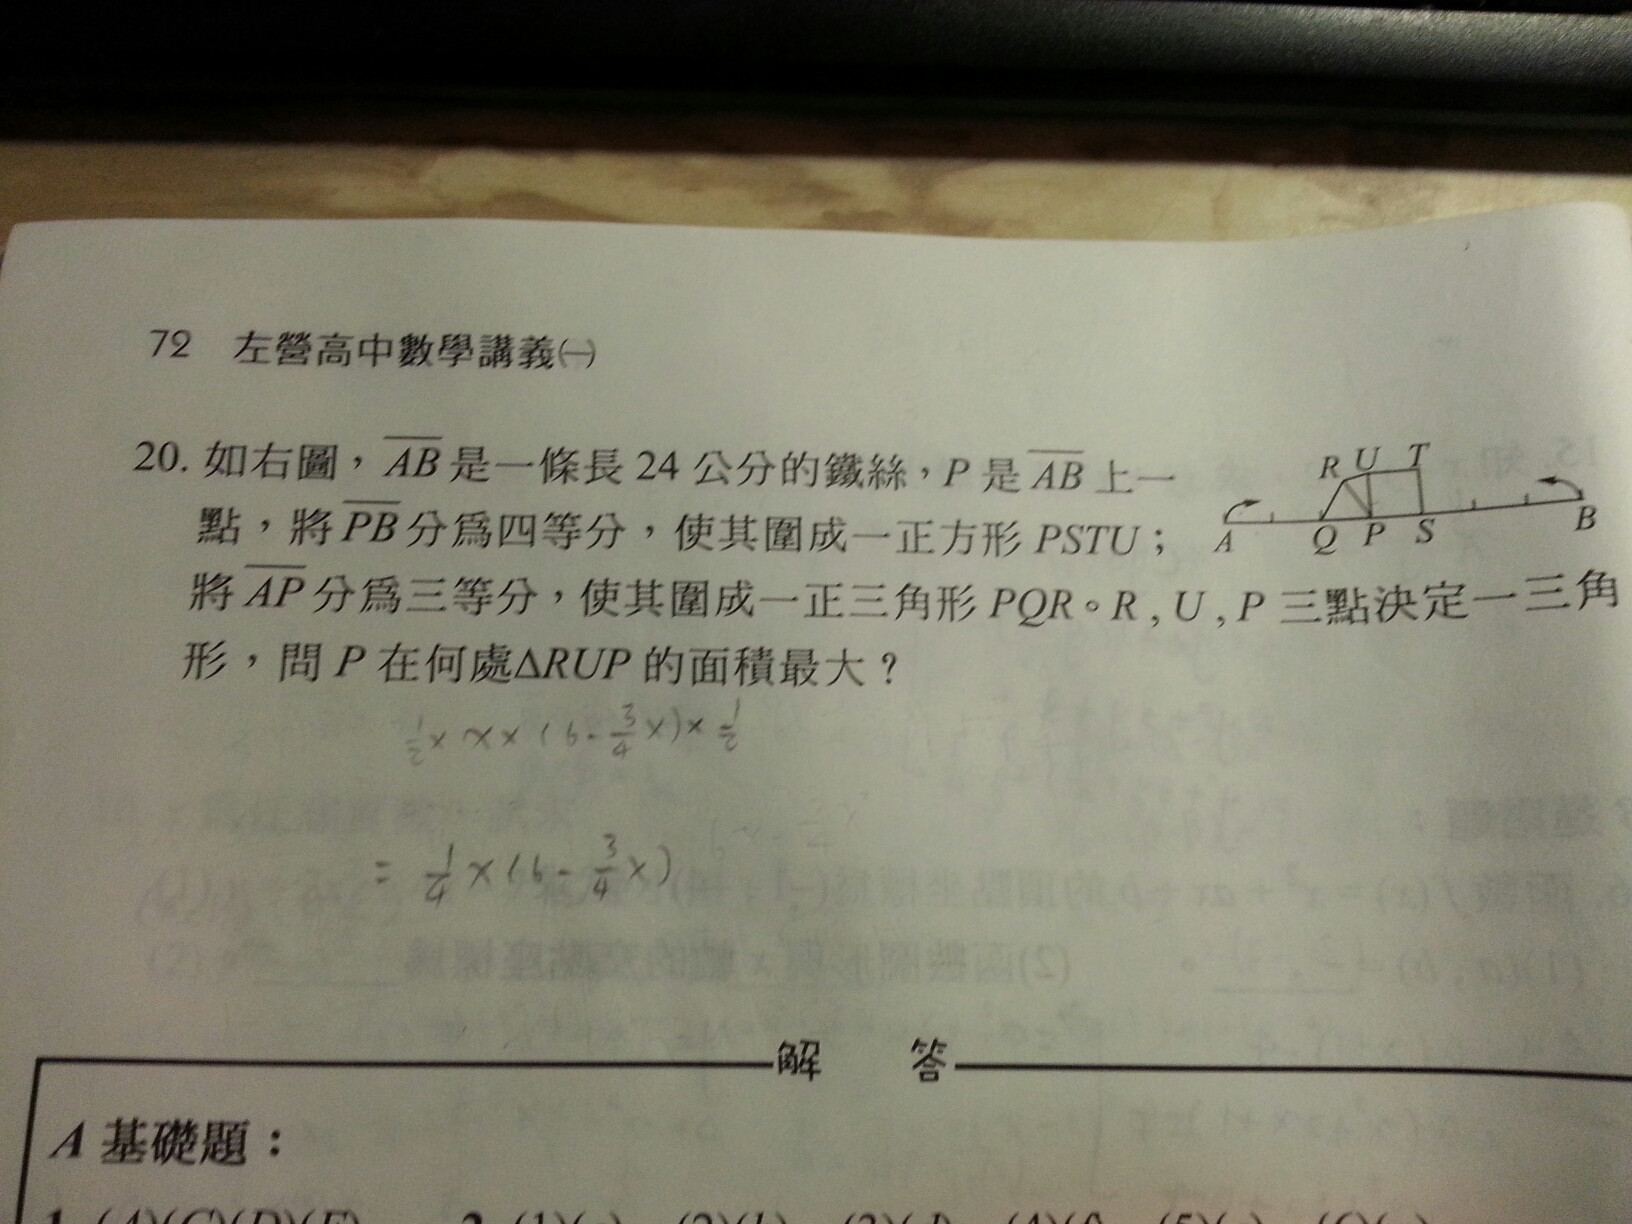 72 左營高中數學講義㈠
20. 如右圖，AB是一條長24公分的鐵絲，P是AB上一
點，將PB分為四等分，使其圍成一正方形PSTU；
將AP分為三等分，使其圍成一正三角形PQR。R，U，P三點決定一三角
形，問P在何處ΔRUP的面積最大？
R U T
A Q P S B
1/2 × x × (6 - 3/4 x) × 1/2
= 1/4 x (6 - 3/4 x)
解 答
A 基礎題：